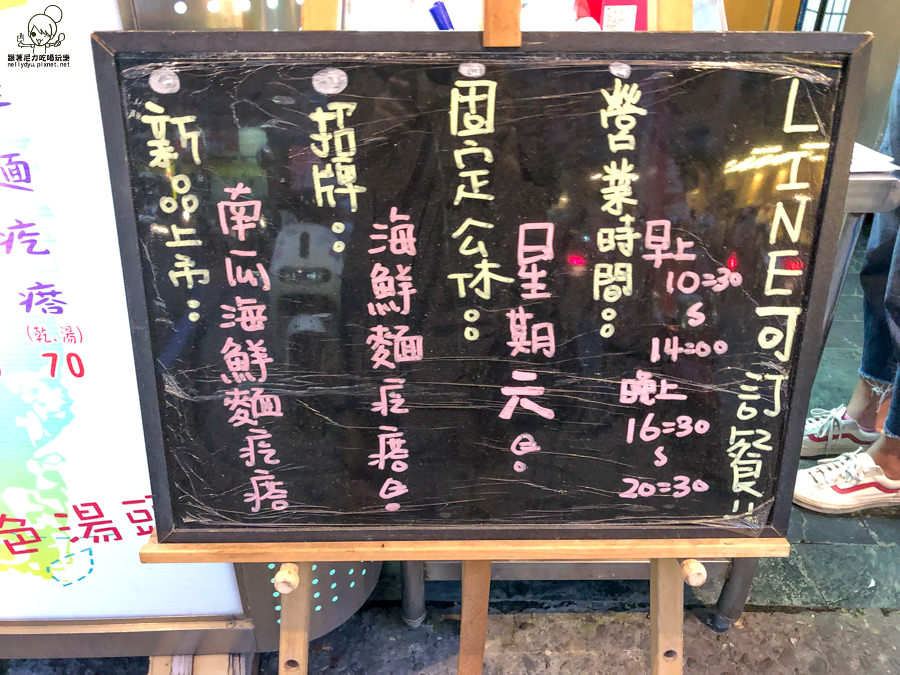 跟著尼力吃喝玩樂
nellydyu.pixnet.net
LINE可訂餐!!
營業時間:
早上
10:30
~
14:00
晚上
16:30
~
20:30
固定公休:
星期元!
招牌:
海鮮麵疙瘩!
新品上市:
南瓜海鮮麵疙瘩
麵疙瘩
(乾、湯)
70
色湯頭